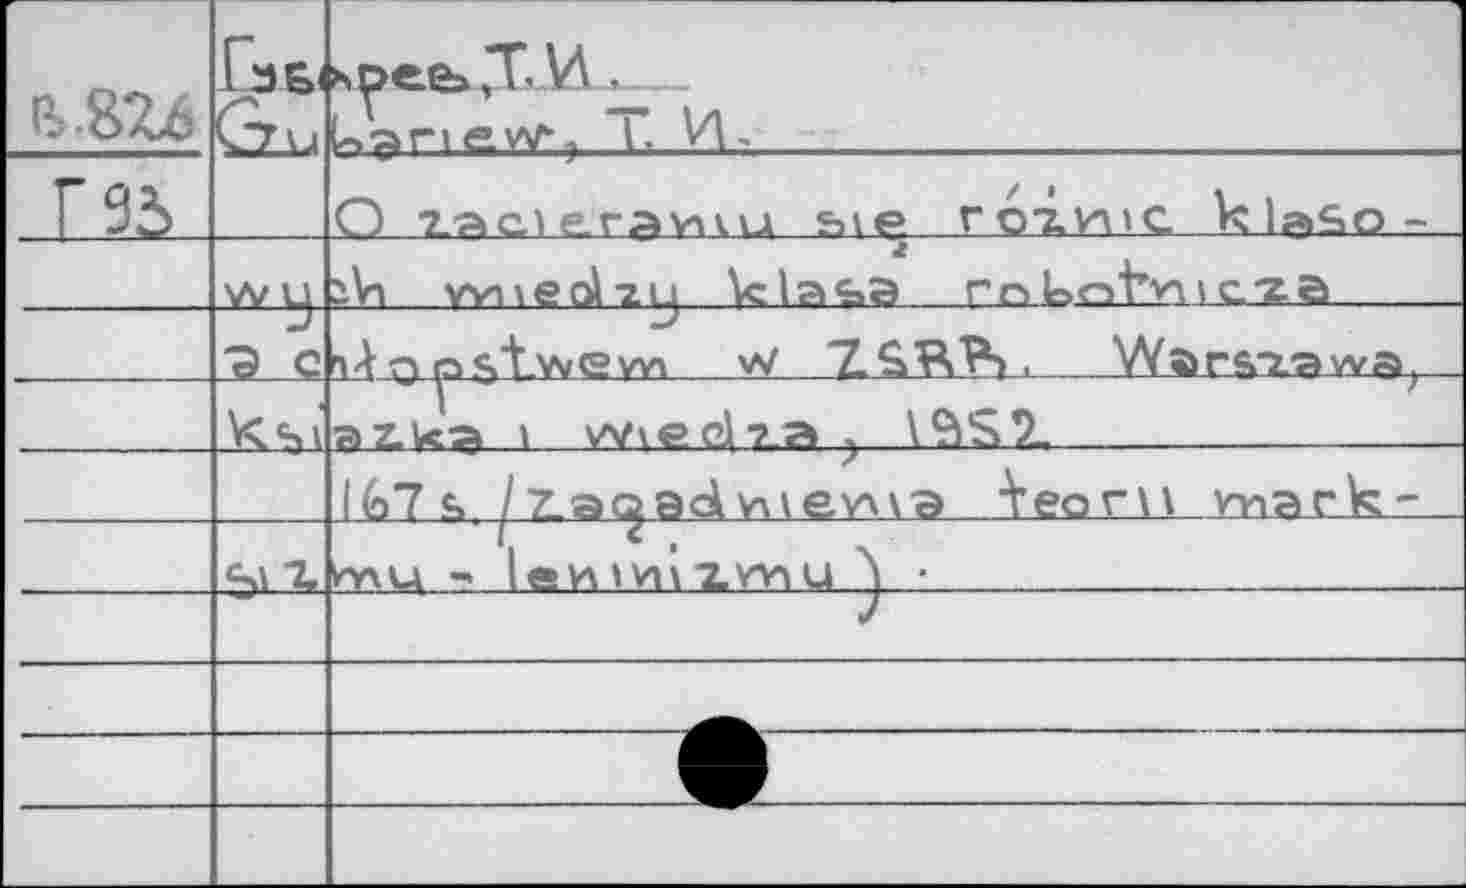 В.826
Г93
Губарев, Т. И.
Gubariew, T. И.
O zacieraniu się róźnic klaso-
wych między klasa robotnicza
a chłopstwem w ZSRR. Warszawa,
Ksiązka i wiedza, 1952
167 s. /Zagadnienia teorii mark-
sizmu - leninizmu).